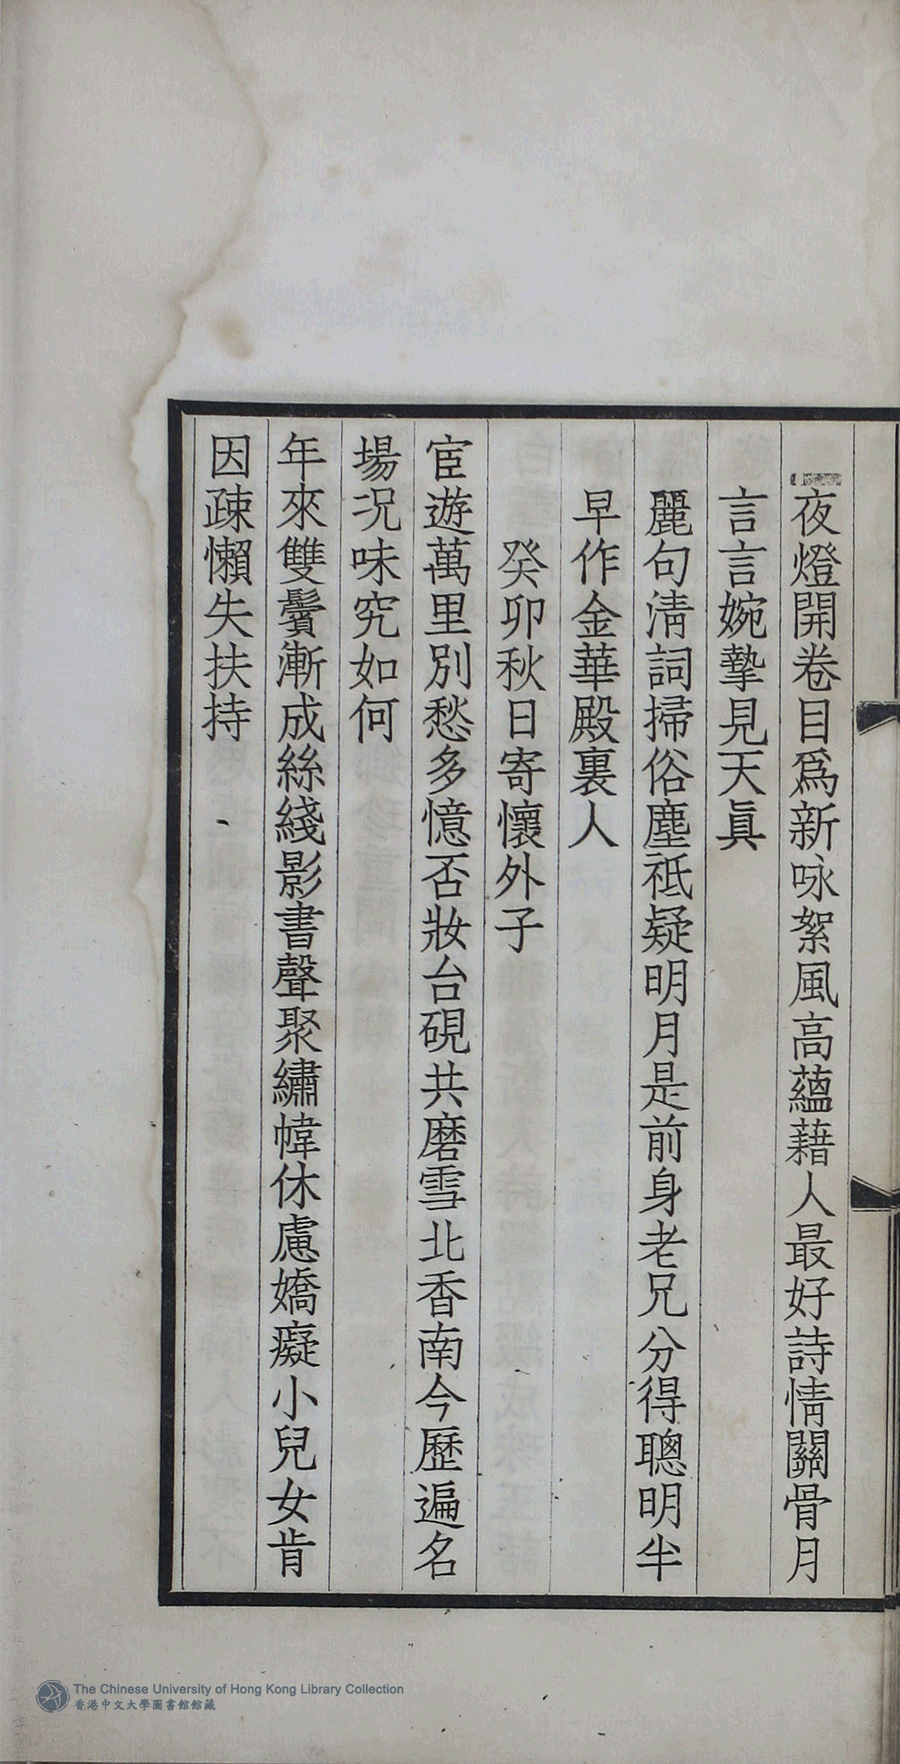 夜燈開卷目爲新咏絮風高蘊藉人最好詩情關骨月
言言婉摯見天眞
麗句淸詞掃俗塵祗疑明月是前身老兄分得聰明半
早作金華殿裏人
癸卯秋日寄懷外子
宦遊萬里別愁多憶否妝台硯共磨雪北香南今歷遍名
場况味究如何
年來雙鬢漸成絲綫影書聲聚繡幃休慮嬌癡小兒女肯
因疎懶失扶持
The Chinese University of Hong Kong Library Collection
香港中文大學圖書館館藏